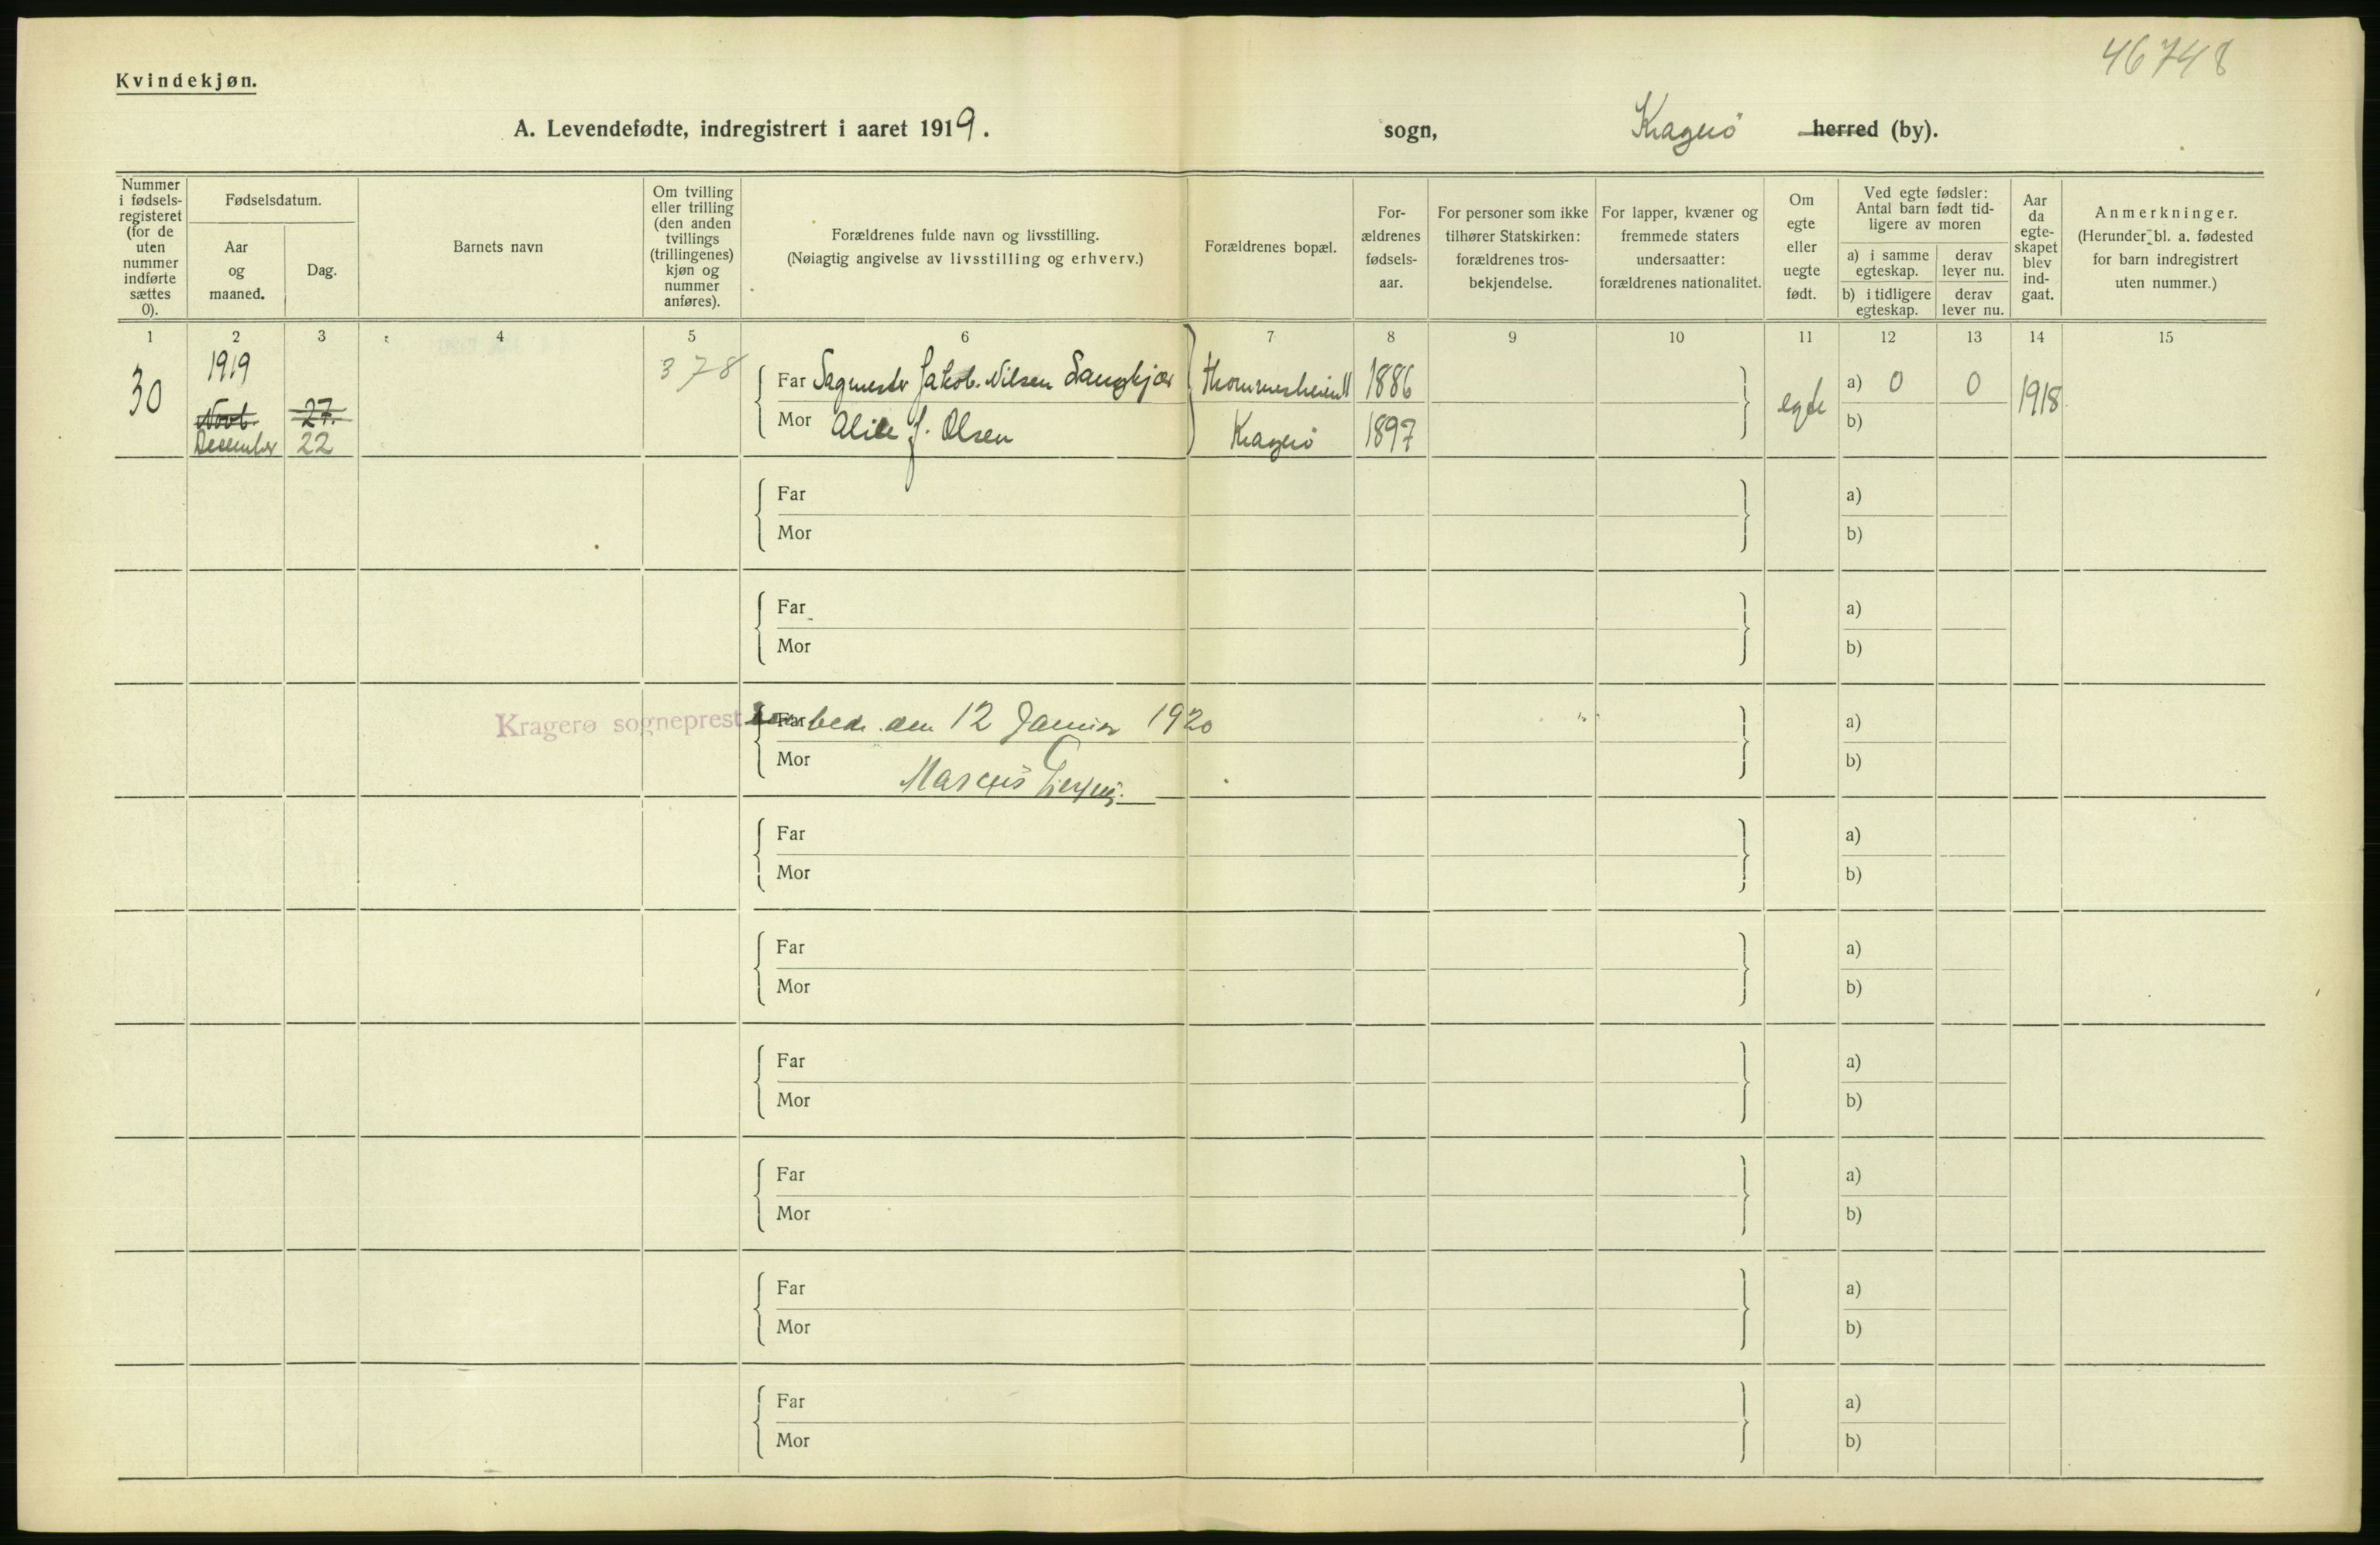 46748
Kvindekjøn.
A. Levendefødte, indregistrert i aaret 1919.
sogn, Kragerö herred (by).
Nummer i fødsels-registeret (for de uten nummer indførte sættes 0).
Fødselsdatum.
Aar og maaned.
Dag.
Barnets navn
Om tvilling eller trilling (den anden tvillings (trillingenes) kjøn og nummer anføres).
Forældrenes fulde navn og livsstilling.
(Nøiagtig angivelse av livsstilling og erhverv.)
Forældrenes bopæl.
For-ældrenes fødsels-aar.
For personer som ikke tilhører Statskirken: forældrenes tros-bekjendelse.
For lapper, kvæner og fremmede staters undersaatter: forældrenes nationalitet.
Om egte eller uegte født.
Ved egte fødsler: Antal barn født tid-ligere av moren
a) i samme egteskap.
derav lever nu.
b) i tidligere egteskap.
derav lever nu.
Aar da egte-skapet blev ind-gaat.
Anmerkninger.
(Herunder bl. a. fødested for barn indregistrert uten nummer.)
1 2 3 4 5 6 7 8 9 10 11 12 13 14 15
30 1919 378
Far Sagmester Jakob Nilsen Langkjær 1886 egte a) 0 0 1918
Novb. 27.
December 22
Mor Alice J. Olsen Kragerö 1897 b)
Far a)
Mor b)
Far a)
Mor b)
Kragerø sogneprest Far den 12 Januar 1920 a)
Mor Marcus b)
Far a)
Mor b)
Far a)
Mor b)
Far a)
Mor b)
Far a)
Mor b)
Far a)
Mor b)
Far a)
Mor b)